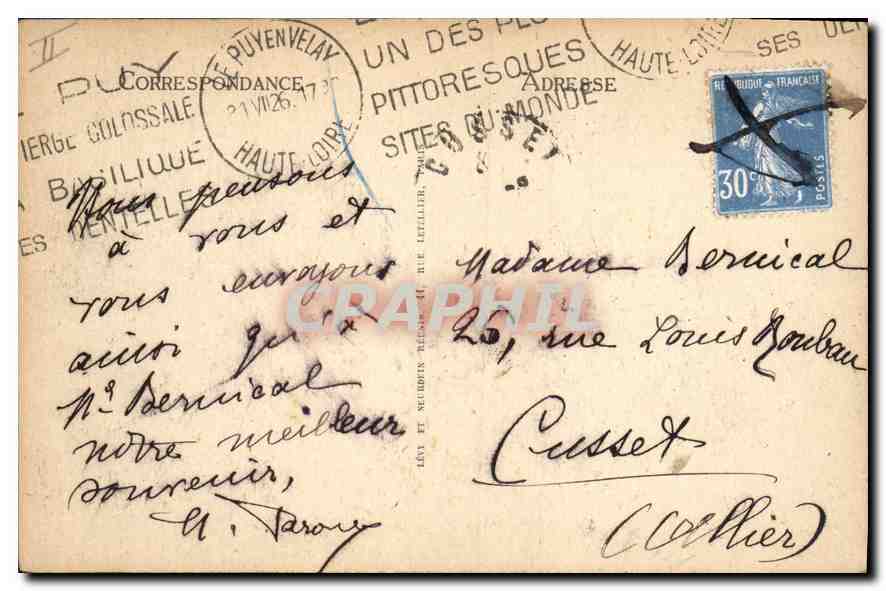 II
LE PUY EN VELAY
31 VII 26 17
HAUTE-LOIRE
PUY
VIERGE COLOSSALE
BASILIQUE
DENTELLES
UN DES PLUS
PITTORESQUES
SITES DU MONDE
HAUTE-LOIRE
SES
CORRESPONDANCE
ADRESSE
CUSSET
REPUBLIQUE FRANÇAISE
30c
POSTES
Nous pensons
à vous et
vous envoyons
ainsi qu'à
Mr Bernical
notre meilleur
souvenir,
LÉVY ET NEURDEIN RÉUNIS, 44, RUE LETELLIER, PARIS
Madame Bernical
26, rue Louis Rouban
Cusset
(Allier)
CRAPHIL